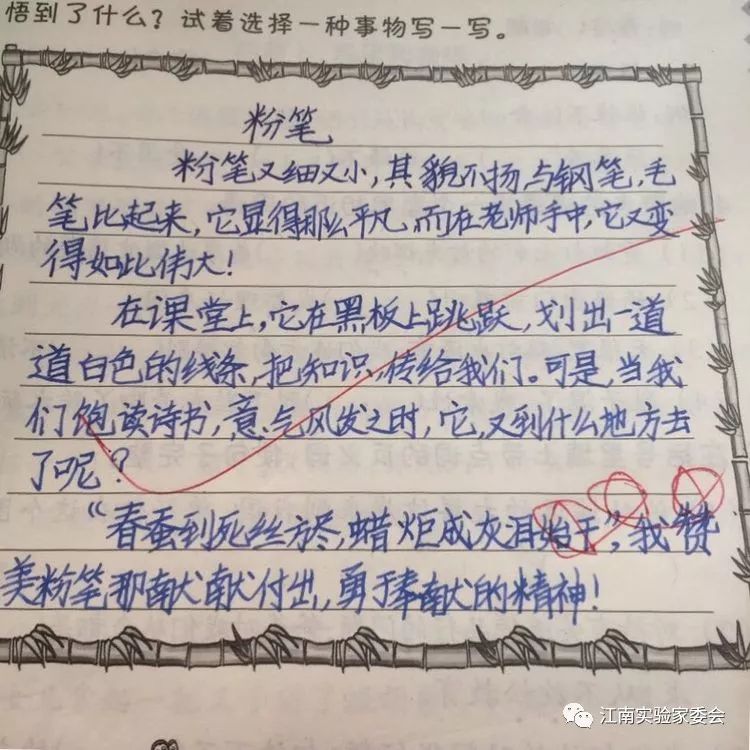 悟到了什么？试着选择一种事物写一写。
粉笔
粉笔又细又小，其貌不扬，与钢笔，毛
笔比起来，它显得那么平凡，而在老师手中，它又变
得如此伟大！
在课堂上，它在黑板上跳跃，划出一道
道白色的线条，把知识传给我们。可是，当我
们饱读诗书，意气风发之时，它又到什么地方去
了呢？
“春蚕到死丝方尽，蜡炬成灰泪始干”，我赞
美粉笔那献献付出，勇于奉献的精神！
江南实验家委会